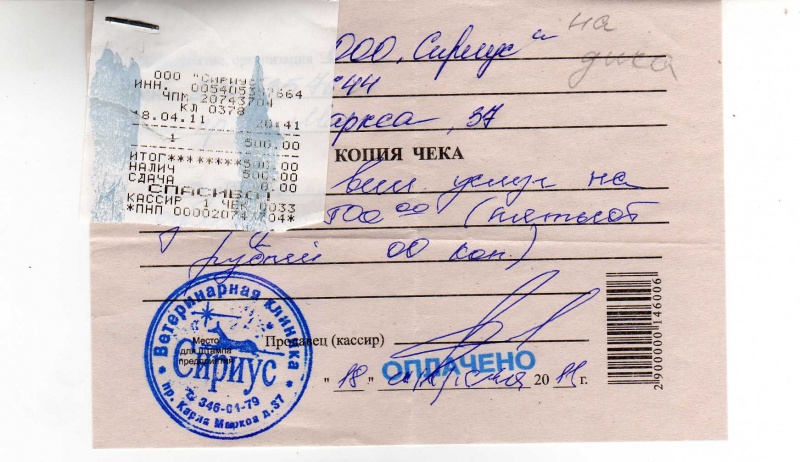 ООО "СИРИУС"
ИНН. 005405317664
ЧПМ 20743704
КЛ 0378
18.04.11 20:41
1 500.00
ИТОГ********500.00
НАЛИЧ 500.00
СДАЧА 0.00
СПАСИБО!
КАССИР 1 ЧЕК 0033
*ПНП 000020743704*
ООО "Сириус"
на
Маркса, 37
КОПИЯ ЧЕКА
вет. услуг на
500 00 (пятьсот
рублей 00 коп.)
Ветеринарная клиника
Сириус
346-01-79
пр. Карла Маркса д.37
Место
для штампа
предприятия
Продавец (кассир)
ОПЛАЧЕНО
"18" апреля 2011 г.
2 900000 146006